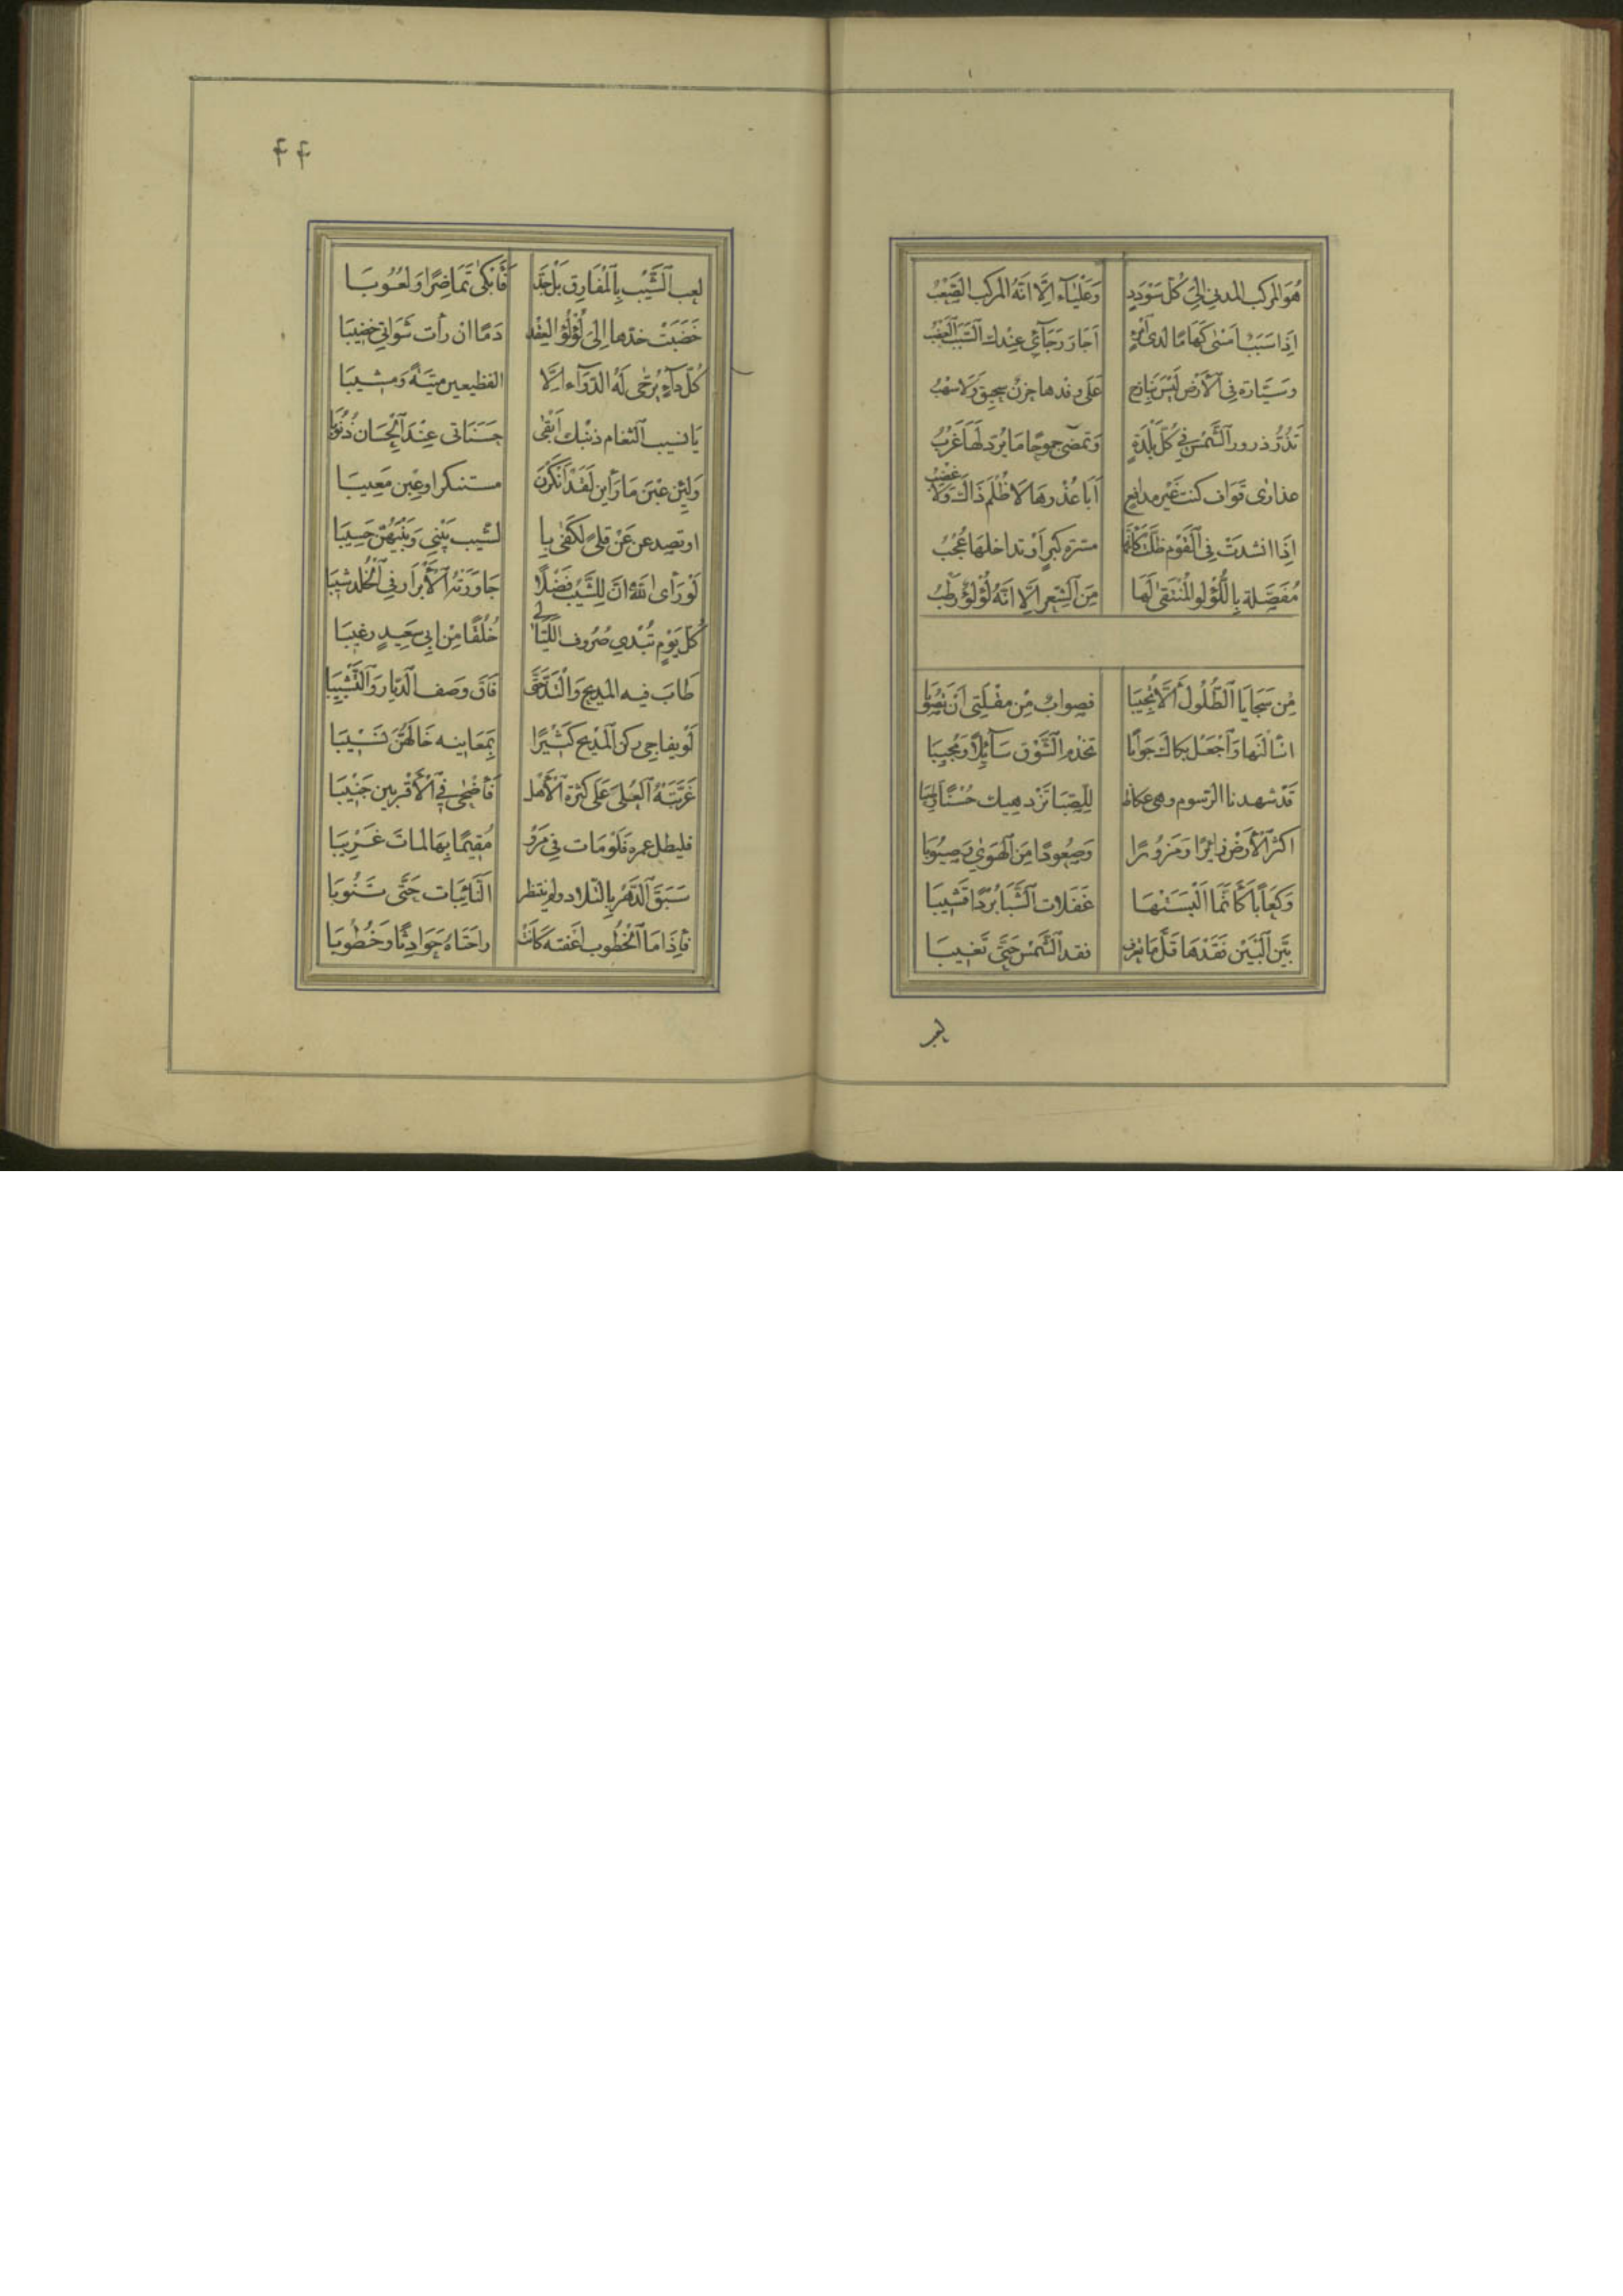 هُوَ المركب المدني الىٰ كُلّ سَوددٍ وَعَلْيَآء اِلَّا انّهُ المركب الصّعْبُ
اِذَا سَبَبٌ اَمْسٰى كَهَامًا لدى امرئٍ اَجَابَ رَجَآئي عِنْدك السَّبَبُ العَضْبُ
وسَيّارة في الأرْض لَيْسَ بنازح عَلٰى وخدها حزنٌ سحيق وَلَا سَهْبُ
تَذُرُّ ذرور الشّمْس في كُلّ بَلْدَةٍ وَتمضى جموحًا مَا يُرَدّ لَهَا غَرْبُ
عذارٰى قوَاف كنت غَيْر مدافع اَبَا عُذْرهَا لَا ظُلْم ذَاك وَلَا غَصْبُ
اِذَا انشدَتْ في القَوْم ظلّت كَأنّها مسرّة كِبْرٍ اَوْ تداخلهَا عُجْبُ
مُفَصَّلة بِاللُّؤْلُو المُنْتَقىٰ لَهَا مِنَ الشِّعر اِلَّا انّهُ لُؤلُؤ رَطْبُ
مِنْ سَجَايَا الطُّلُول اَلَّا تُجِيبَا فصوابٌ مِنْ مقْلَتِي اَنْ تَصُوبَا
اسْأَلَنهَا وَاجْعَلْ بكاك جَوَابًا تجد الشَّوْق سَآئِلًا وَمُجِيبَا
قَدْ شهدنا الرّسوم وهي عكاظ لِلصِّبَا تَزْدهيك حُسْنًا وطيبا
اكثر الأرْض زائرًا وَمَزُورًا وَصَعُودًا مِنَ الهَوٰى وَصَبُوبَا
وَكعَابًا كَأنَّمَا اَلْبَسَتْهَا غَفَلات الشَّبَاب بُرْدًا قَشيبَا
بَيَّن البَيْن فَقْدَهَا قَلَّ مَا تعرف فقد الشَّمْس حَتّى تَغيبَا
لعر
٤٤
لعب الشَّيْب بِالمَفَارق بَلْ جَدّ فَأبْكىٰ تُمَاضِرًا وَلَعُوبَا
خَضَبَتْ خدّها اِلىٰ لُؤْلُؤ العقد دَمًا ان رأت شَوَاتي خضيبَا
كُلّ دَآءٍ يُرجٰى لَهُ الدوَآء اِلَّا الفظيعين ميتَةً وَمشيبَا
يَا نسيب الثّغام ذنبك اَبْقٰى حَسَنَاتى عِنْدَ الحِسَان ذُنُوبَا
وَلَئِن عِبْنَ مَا رَأين لَقَدْ اَنْكَرْنَ مستنكرا وعِبْن مَعِيبَا
او تصدعن عَنْ قِلىً لَكفٰى با لشيب بَيْني وَبَيْنَهُنّ حَسِيبَا
لَوْ رَأى اللهُ انّ لِلشَّيْب فَضْلًا جَاوَرَتْهُ الأبْرَار في الخُلد شيبَا
كُلّ يَوْمٍ تُبْدي صُرُوف اللَّيَالي خُلُقًا مِنْ ابي سَعيدٍ رغيبَا
طَابَ فيه المَديح وَالْتَذَّ حَتّٰى فَاقَ وَصف الدّيار وَالتَّشْبيبَا
لَوْ يفاجي ركن المَديح كَثيرًا بمعَانيه خَالَهُنّ نَسيْبَا
غَرَّبَتْهُ العُلىٰ عَلٰى كَثْرة الأهْل فَأضْحٰى في الأقْربين جَنيبَا
فليطل عمره فَلَوْ مَات في مَرْو مُقِيمًا بِهَا لمَاتَ غَريبَا
سَبَقَ الدّهْر بِالتّلاد ولم ينتظر النّائِبَات حَتّى تَنُوبَا
فَإِذَا مَا الخُطُوب اعْفته كَانَت راحَتَاهُ حَوَادِثًا وَخُطُوبَا